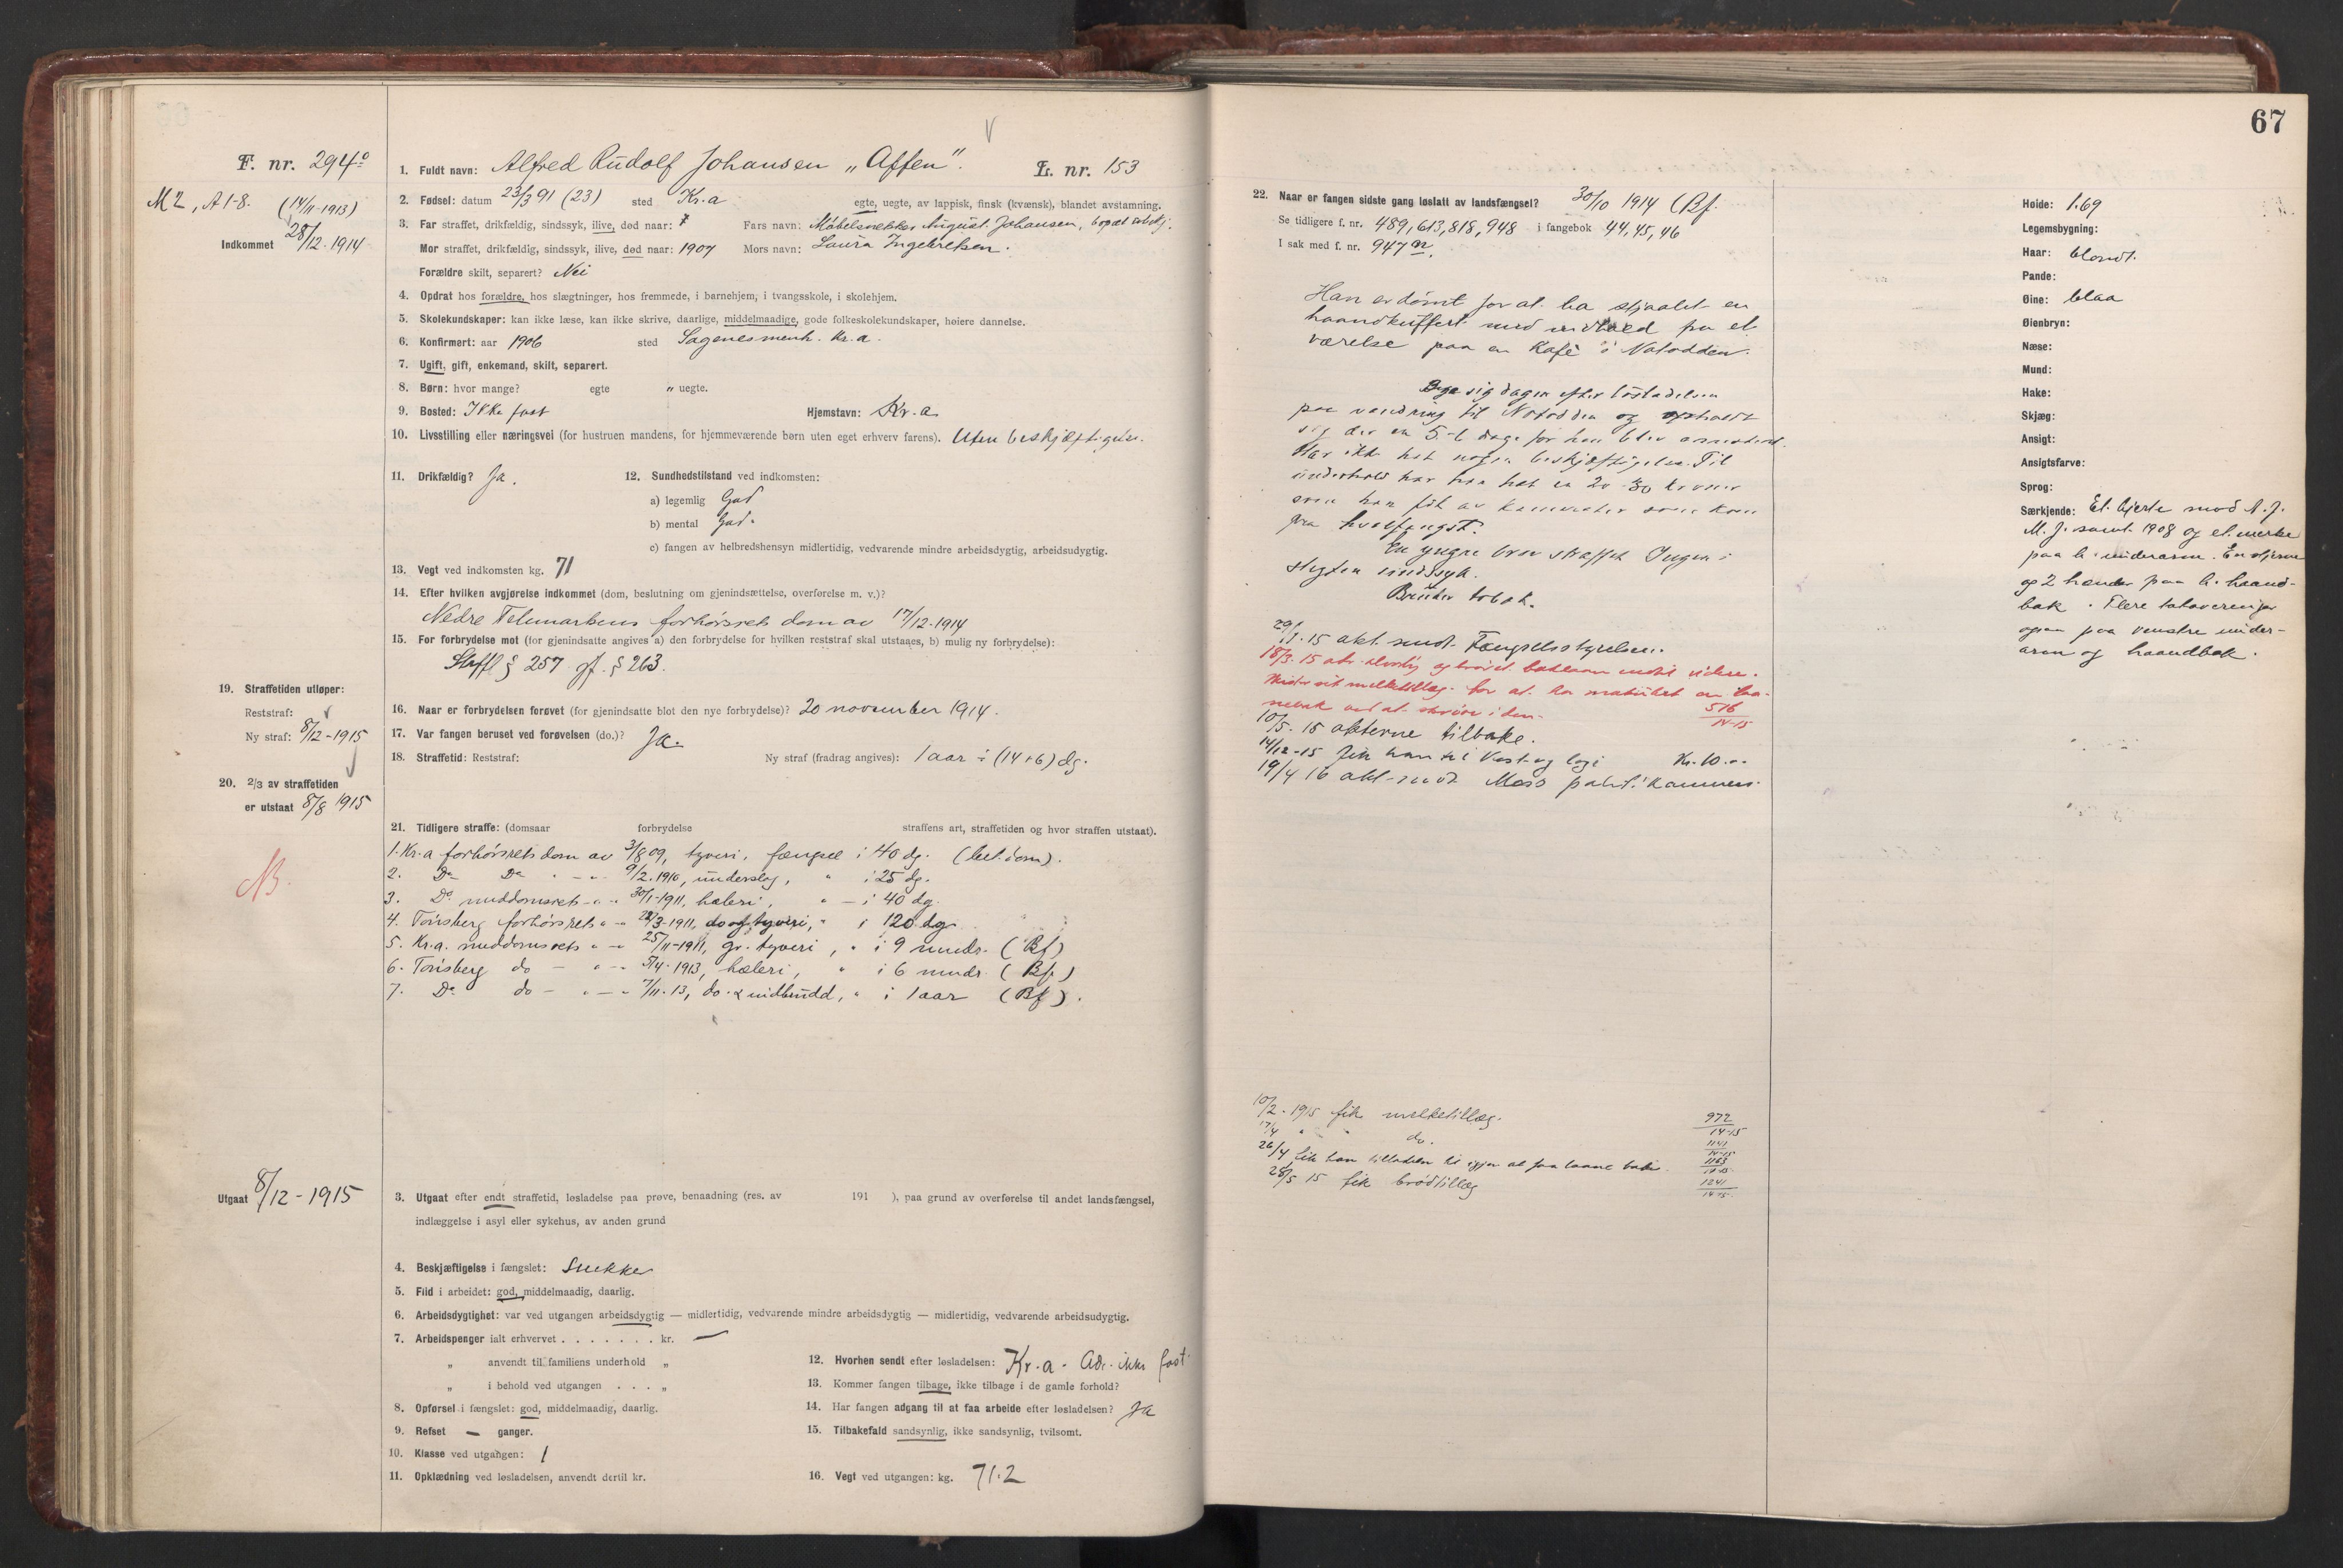 F. nr. 294°
M 2, A 1-8. (14/11-1913)
Indkommet 28/12-1914
1. Fuldt navn: Alfred Rudolf Johansen "Affen".
L. nr. 153
2. Fødsel: datum 23/3 91 (23) sted Kr.a egte, uegte, av lappisk, finsk (kvænsk), blandet avstamning.
3. Far straffet, drikfældig, sindssyk, ilive, død naar: Fars navn: Møbelsnekker August Johansen, bopæl
Mor straffet, drikfældig, sindssyk, ilive, død naar: 1907 Mors navn: Laura Ingebretsen.
Forældre skilt, separert? Nei
4. Opdrat hos forældre, hos slægtninger, hos fremmede, i barnehjem, i tvangsskole, i skolehjem.
5. Skolekundskaper: kan ikke læse, kan ikke skrive, daarlige, middelmaadige, gode folkeskolekundskaper, høiere dannelse.
6. Konfirmert: aar 1906 sted Sagenes menh. Kr.a.
7. Ugift, gift, enkemand, skilt, separert.
8. Børn: hvor mange? egte " uegte.
9. Bosted: Ikke fast Hjemstavn: Kr.a
10. Livsstilling eller næringsvei (for hustruen mandens, for hjemmeværende børn uten eget erhverv farens). Uten beskjæftigelse.
11. Drikfældig? Ja.
12. Sundhedstilstand ved indkomsten:
a) legemlig God
b) mental God.
c) fangen av helbredshensyn midlertidig, vedvarende mindre arbeidsdygtig, arbeidsudygtig.
13. Vegt ved indkomsten kg. 71
14. Efter hvilken avgjørelse indkommet (dom, beslutning om gjenindsættelse, overførelse m. v.)?
Nedre Telemarkens forhørsrets dom av 17/12-1914
15. For forbrydelse mot (for gjenindsatte angives a) den forbrydelse for hvilken reststraf skal utstaaes, b) mulig ny forbrydelse):
Straffl § 257 jf. § 263.
16. Naar er forbrydelsen forøvet (for gjenindsatte blot den nye forbrydelse)? 20 november 1914.
17. Var fangen beruset ved forøvelsen (do.)? Ja.
18. Straffetid: Reststraf: Ny straf (fradrag angives): 1 aar ÷ (14+6) dg.
19. Straffetiden utløper:
Reststraf:
Ny straf: 8/12-1915
20. 2/3 av straffetiden
er utstaat 8/8 1915
NB.
21. Tidligere straffe: (domsaar forbrydelse straffens art, straffetiden og hvor straffen utstaat).
1. Kr.a forhørsrets dom av 3/8 09, tyveri, fængsel i 40 dg. (bet. dom).
2. Do Do " - " 9/2.1910, underslag, " i 25 dg.
3. Do meddomsrets - " - " 30/1-1911, hæleri, " - i 40 dg.
4. Tønsberg forhørsrets " - 28/3-1911, do og tyveri, " i 120 dg
5. Kr.a. meddomsrets " - " 25/11-1911, gr. tyveri, " i 9 mndr. (Bf)
6. Tønsberg do - " - " 5/4-1913, hæleri, " i 6 mndr. (Bf.)
7. Do do - " - " 7/11-13, do. & indbrudd, " i 1 aar (Bf).
Utgaat 8/12-1915
3. Utgaat efter endt straffetid, løsladelse paa prøve, benaadning (res. av 191 ), paa grund av overførelse til andet landsfængsel,
indlæggelse i asyl eller sykehus, av anden grund
4. Beskjæftigelse i fængslet: Snekker
5. Flid i arbeidet: god, middelmaadig, daarlig.
6. Arbeidsdygtighet: var ved utgangen arbeidsdygtig — midlertidig, vedvarende mindre arbeidsdygtig — midlertidig, vedvarende arbeidsudygtig.
7. Arbeidspenger ialt erhvervet . . . . . . . kr. —
" anvendt til familiens underhold "
" i behold ved utgangen . . . "
8. Opførsel i fængslet: god, middelmaadig, daarlig.
9. Refset — ganger.
10. Klasse ved utgangen: 1
11. Opklædning ved løsladelsen, anvendt dertil kr.
12. Hvorhen sendt efter løsladelsen: Kr.a. Adr. ikke fast
13. Kommer fangen tilbage, ikke tilbage i de gamle forhold?
14. Har fangen adgang til at faa arbeide efter løsladelsen? Ja
15. Tilbakefald sandsynlig, ikke sandsynlig, tvilsomt.
16. Vegt ved utgangen: kg. 71.2
67
22. Naar er fangen sidste gang løslatt av landsfængsel? 30/10 1914 (Bf.
Se tidligere f. nr. 489, 613, 818, 948 i fangebok 44, 45, 46
I sak med f. nr. 947
Han er dømt for at ha stjaalet en
haandkuffert med indhold paa et
værelse paa en Kafé i Notodden.
Bega sig dagen efter løsladelsen
paa vandring til Notodden og opholdt
sig der en 5-6 dage før han blev arrestert.
Har ikke hat nogen beskjæftigelse. Til
underhold har han hat en 20-30 kroner
som han fik av kamerater som kom
fra hvalfangst.
En yngre bror straffet. Ingen i
slegten sindssyk.
Bruker tobak.
29/1-15 akt. sendt Fængselsstyrelsen.
18/3.15 atv. og indtil videre.
Mister sit melketillæg for at ha en laa-
nebok ved at skrive i den. 516/14-15
10/5-15 akterne tilbake.
14/12-15 fik han til Kost og logi Kr. 10.00
19/4 16 akt. sendt Moss politikammer.
10/2-1915 fik melketillæg. 972/14-15
17/4 " " do. 1141/14-15
26/4 fik han tilladelse til igjen at faa laane bøker. 1163/14-15
28/5 15 fik brødtillæg 1241/14-15
Høide: 1.69
Legemsbygning:
Haar: blondt.
Pande:
Øine: blaa
Øienbryn:
Næse:
Mund:
Hake:
Skjæg:
Ansigt:
Ansigtsfarve:
Sprog:
Særkjende: Et hjerte med A. J.
M. J. samt 1908 og et merke
paa h. underarm. En stjerne
og 2 hænder paa h. haand-
bak. Flere tatoveringer
ogsaa paa venstre under-
arm og haandbak.